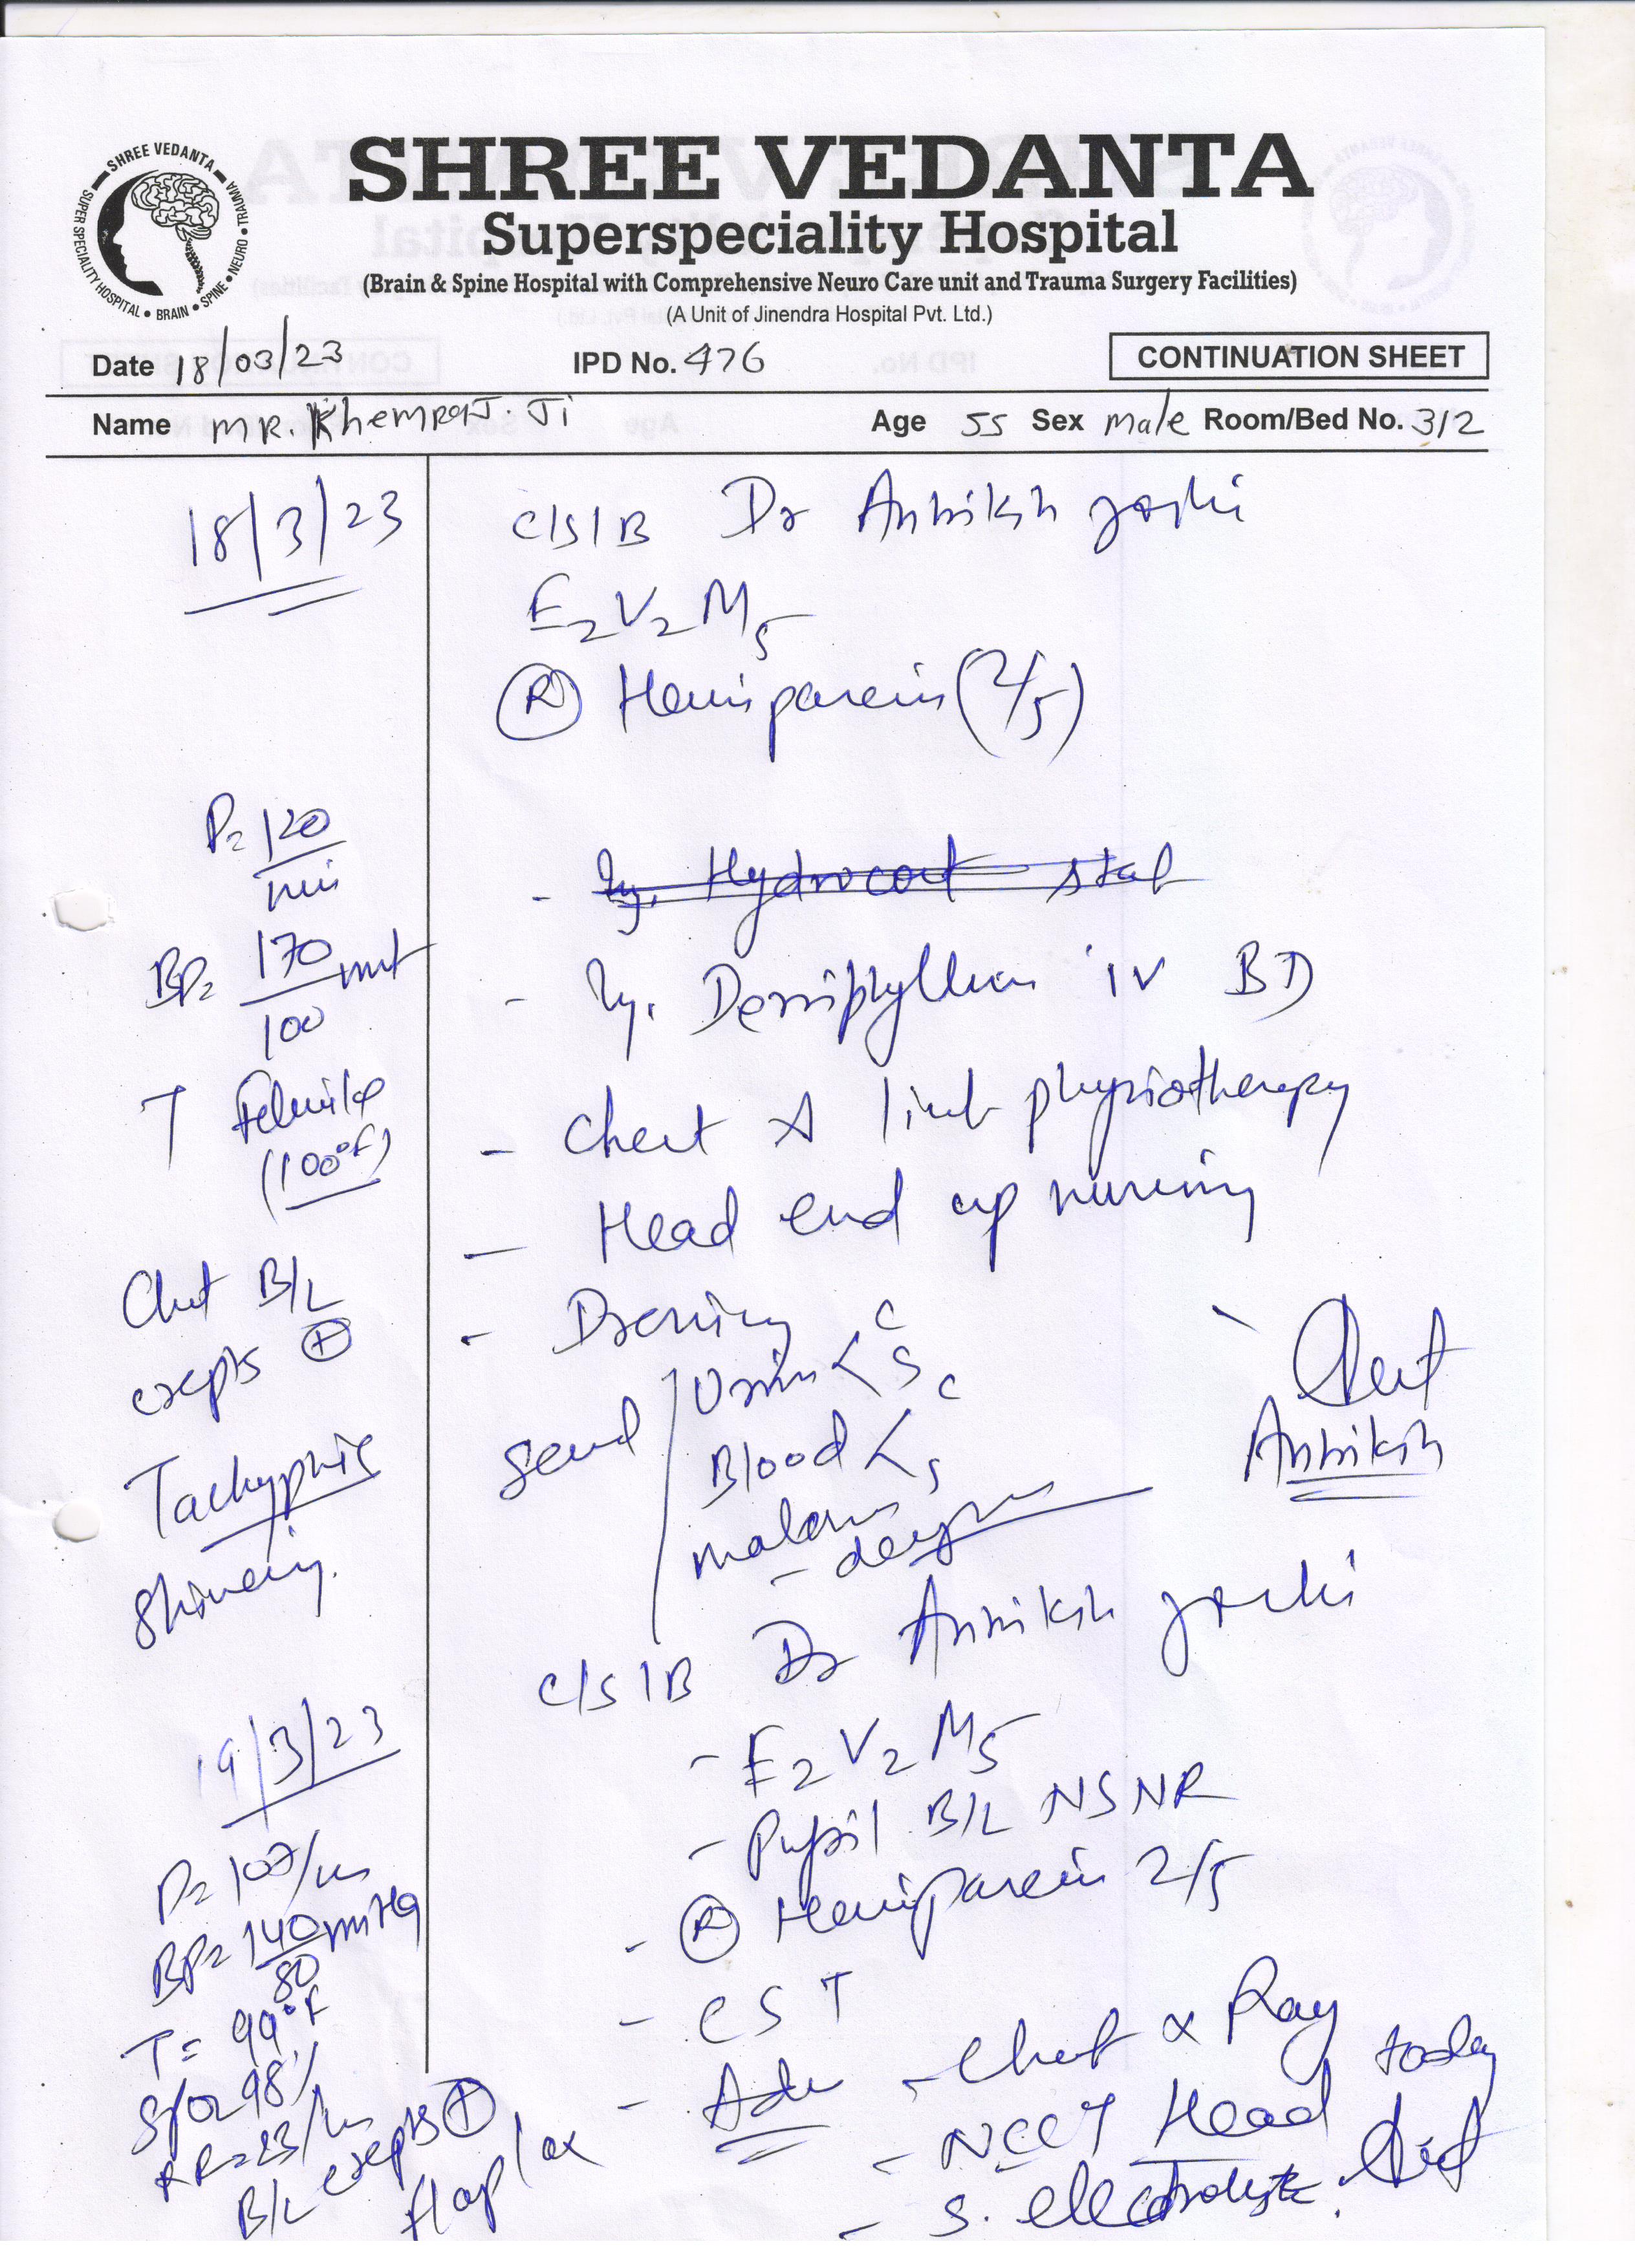 SHREE VEDANTA
SUPER SPECIALITY HOSPITAL • BRAIN • SPINE • NEURO • TRAUMA
SHREE VEDANTA
Superspeciality Hospital
(Brain & Spine Hospital with Comprehensive Neuro Care unit and Trauma Surgery Facilities)
(A Unit of Jinendra Hospital Pvt. Ltd.)
Date 18/03/23 IPD No. 476 CONTINUATION SHEET
Name MR. Khemraj. Ji Age 55 Sex Male Room/Bed No. 312
18/3/23
C/S/B Dr
E2V2M5
(R) Hemiparesis (2/5)
P= 120
min
BP= 170
100
T Febrile
(100°F)
Chest B/L
crepts (+)
Tachypnic
Shivering.
- Inj. Hydrocort stat
- Inj. Deriphyllin IV BD
- Chest & limb physiotherapy
- Head end up nursing
- Dressing
Send
Urine < C
S
Blood < C
S
malaria
- dengue
19/3/23
P= 107/m
BP= 140 mmHg
80
T= 99°F
SpO2 98%
RR=23/m
B/L crepts (+)
flap lax
C/S/B Dr
- E2V2M5
- Pupil B/L NSNR
- (R) Hemiparesis 2/5
- CST
- Adv - Chest x Ray
- NCCT Head today
- S. electrolyte.